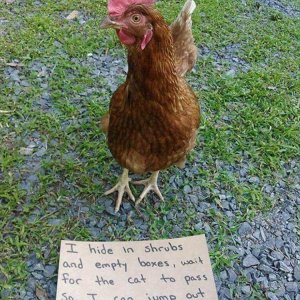 I hide in shrubs
and empty boxes, wait
for the cat to pass
so I can jump out